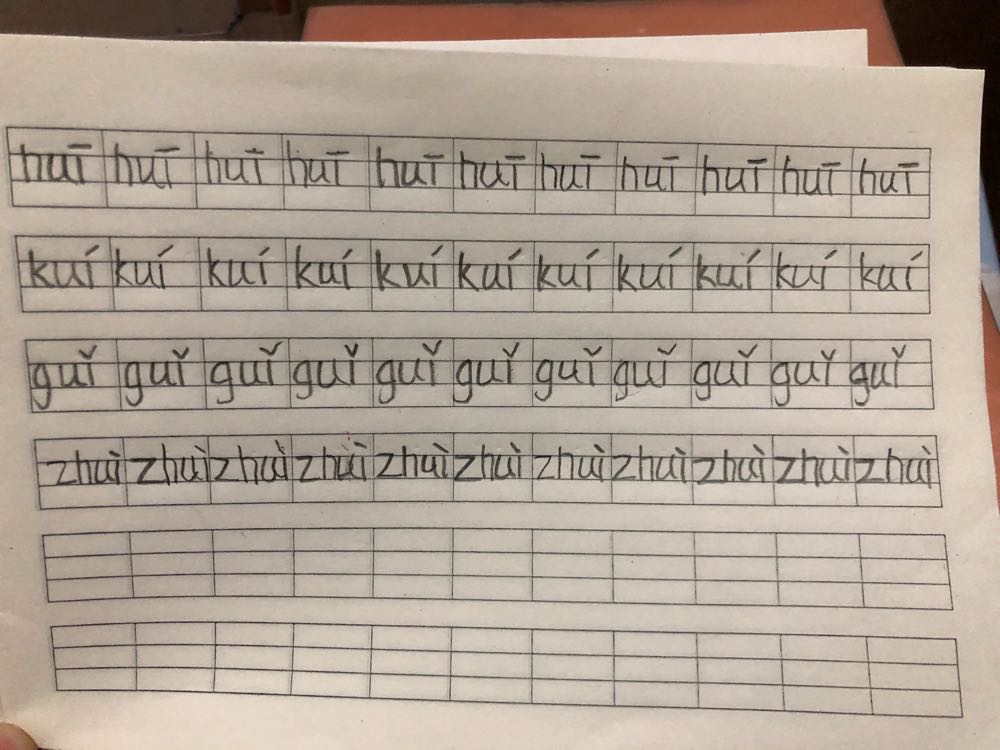 huī huī huī huī huī huī huī huī huī huī huī
kuí kuí kuí kuí kuí kuí kuí kuí kuí kuí kuí
guǐ guǐ guǐ guǐ guǐ guǐ guǐ guǐ guǐ guǐ guǐ
zhuì zhuì zhuì zhuì zhuì zhuì zhuì zhuì zhuì zhuì zhuì